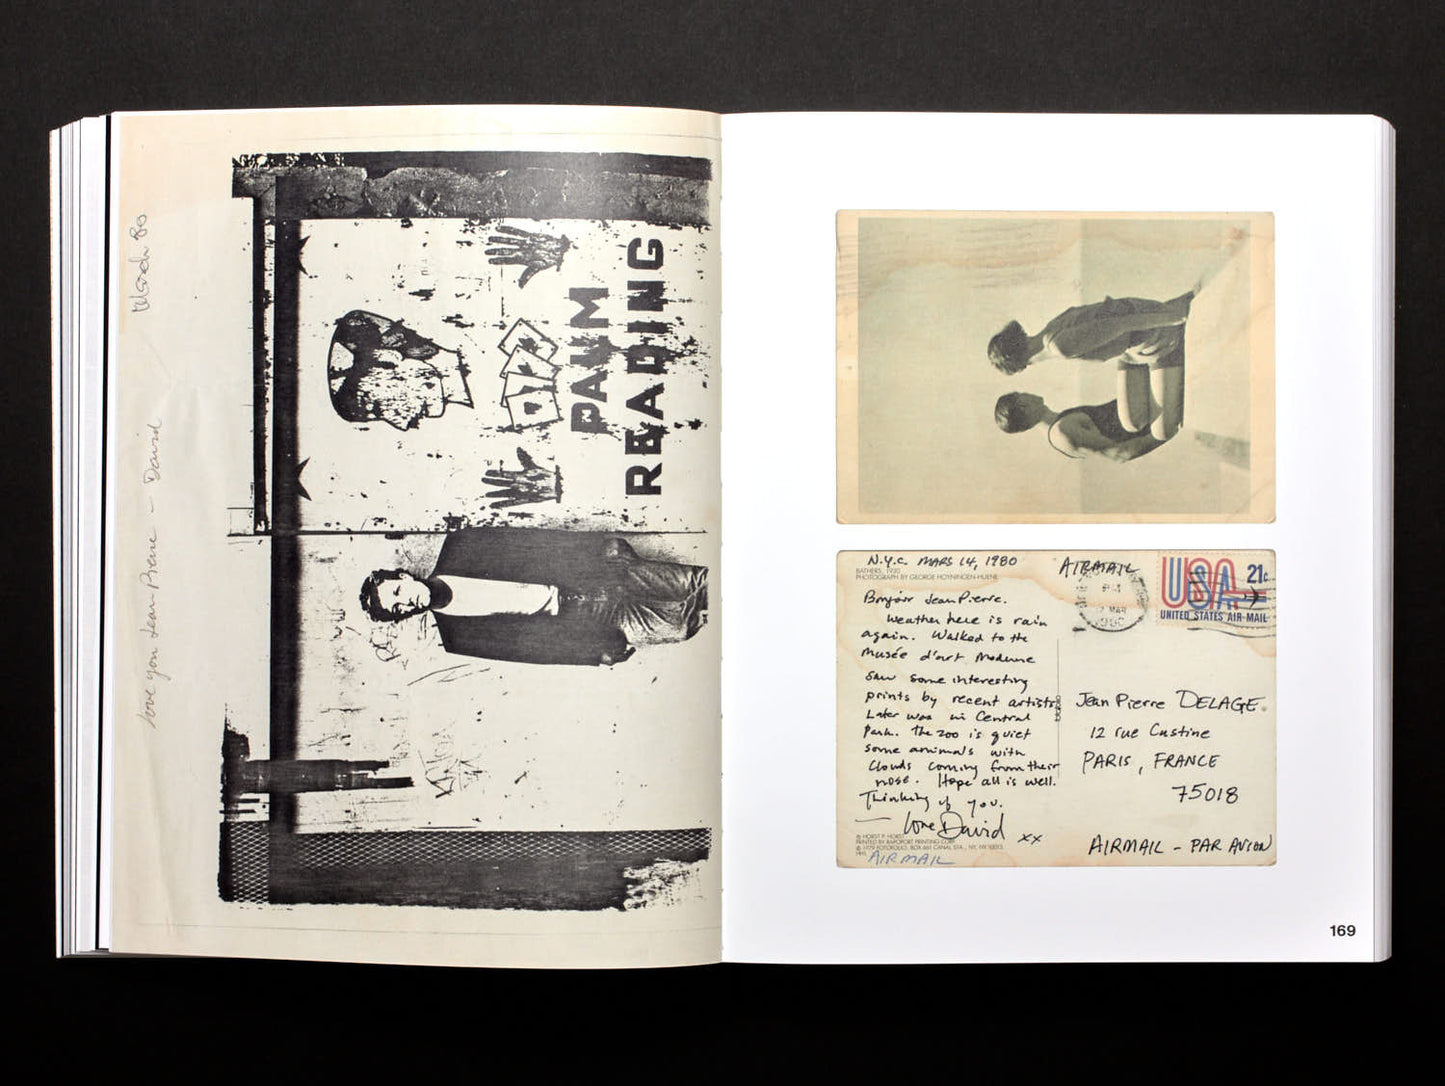 Love you Jean Pierre - David
March 80
PALM
READING
N.Y.C. MARS 14, 1980
AIRMAIL
BATHERS, 1930
PHOTOGRAPH BY GEORGE HOYNINGEN-HUENE
USA 21c
UNITED STATES AIR MAIL
PM
MAR
1980
Bonjour Jean Pierre.
Weather here is rain
again. Walked to the
Musée d'art Moderne
Saw some interesting
prints by recent artists
Later was in Central
Park. The zoo is quiet
some animals with
Clouds coming from their
nose. Hope all is well.
Thinking of you.
— love David xx
Jean Pierre DELAGE.
12 rue Custine
PARIS, FRANCE
75018
AIRMAIL - PAR AVION
© HORST P. HORST
PRINTED BY RAPOPORT PRINTING CORP.
© 1979 FOTOFOLIO, BOX 661 CANAL STA., NY, NY 10013.
AIRMAIL
169